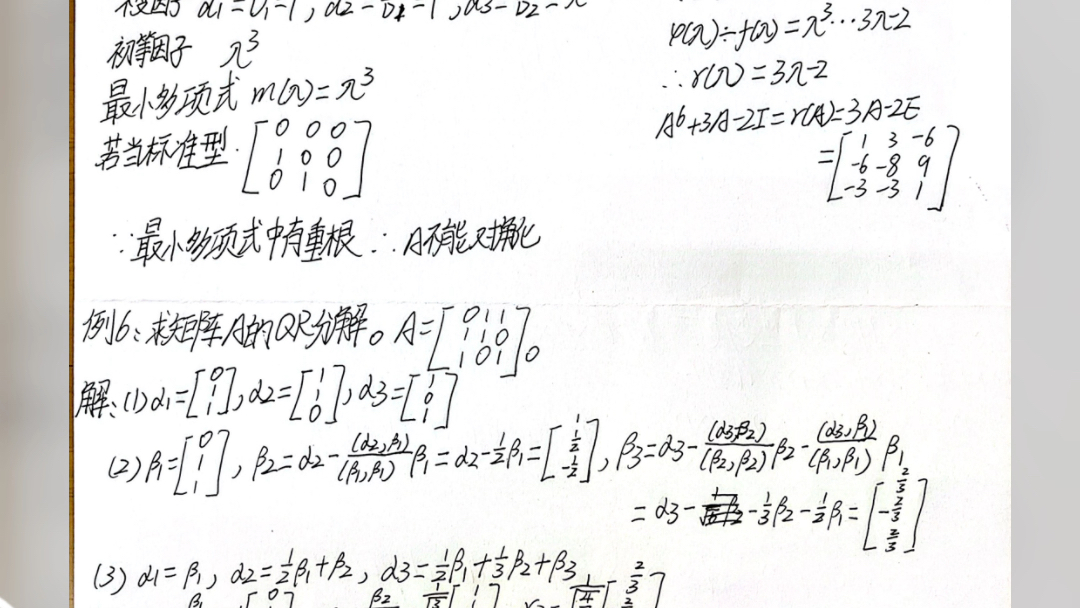 初等因子 λ³
最小多项式 m(λ)=λ³
若当标准型. [0 0 0
1 0 0
0 1 0]
∵最小多项式中有重根 ∴A不能对角化
φ(λ)÷f(λ)=λ³…3λ-2
∴r(λ)=3λ-2
A⁶+3A-2I=r(A)=3A-2E
=[1 3 -6
-6 -8 9
-3 -3 1]
例6:求矩阵A的QR分解。A=[0 1 1
1 1 0
1 0 1]。
解:(1)α1=[0 1 1],α2=[1 1 0],α3=[1 0 1]
(2)β1=[0 1 1],β2=α2-(α2,β1)/(β1,β1)β1=α2-1/2β1=[1 1/2 -1/2],β3=α3-(α3,β2)/(β2,β2)β2-(α3,β1)/(β1,β1)β1
=α3-1/3β2-1/2β1=[2/3 -2/3 2/3]
(3)α1=β1,α2=1/2β1+β2,α3=1/2β1+1/3β2+β3